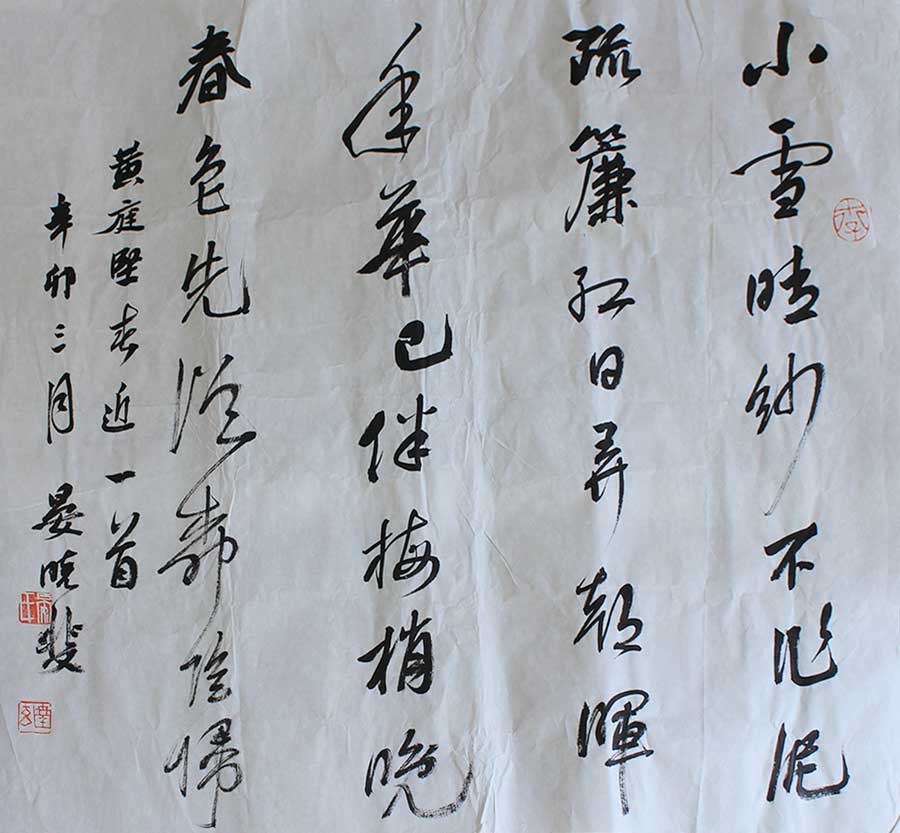 小雪晴紗不作泥
疏簾红日弄朝暉
年華已伴梅梢晚
春色先從際歸
黄庭堅春近一首
辛卯三月 晏晓斐